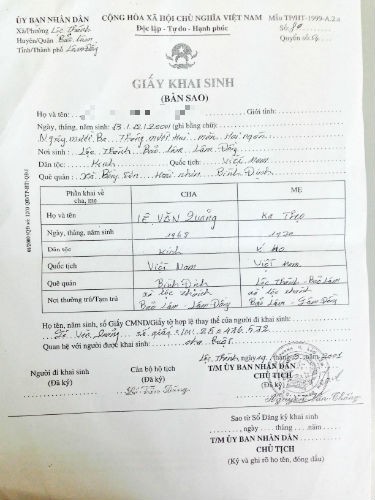 ỦY BAN NHÂN DÂN
Xã/Phường Lộc Thành
Huyện/Quận Bảo Lâm
Tỉnh/Thành phố Lâm Đồng
CỘNG HÒA XÃ HỘI CHỦ NGHĨA VIỆT NAM
Độc lập - Tự do - Hạnh phúc
Mẫu TP/HT-1999-A.2.a
Số:
Quyển số:
GIẤY KHAI SINH
(BẢN SAO)
Họ và tên: Giới tính:
Ngày, tháng, năm sinh: 13/12/2000 (ghi bằng chữ):
Ngày mười Ba Tháng mười Hai năm Hai ngàn
Nơi sinh: Lộc Thành Bảo Lâm Lâm Đồng
Dân tộc: Kinh Quốc tịch: Việt Nam
Quê quán: Xã Hoài nhơn Bình Định
Phần khai về cha, mẹ CHA MẸ
Họ và tên LÊ VĂN Quảng Ka
Ngày, tháng, năm sinh 1968 1970
Dân tộc Kinh
Quốc tịch Việt Nam Việt Nam
Quê quán Bình Định Lộc Thành - Bảo Lâm
Nơi thường trú/Tạm trú xã lộc thành xã lộc thành
Bảo Lâm - Lâm Đồng Bảo Lâm - Lâm Đồng
Họ tên, năm sinh, số Giấy CMND/Giấy tờ hợp lệ thay thế của người đi khai sinh:
Lê Văn Quảng 250476572
Quan hệ với người được khai sinh: cha
Lộc Thành, ngày tháng 3 năm 2001
Người đi khai sinh Cán bộ hộ tịch T/M ỦY BAN NHÂN DÂN
(Đã ký) (Đã ký) CHỦ TỊCH
(Đã ký)
Sao từ Sổ Đăng ký khai sinh
, ngày tháng năm
T/M ỦY BAN NHÂN DÂN
CHỦ TỊCH
(Ký và ghi rõ họ tên, đóng dấu)